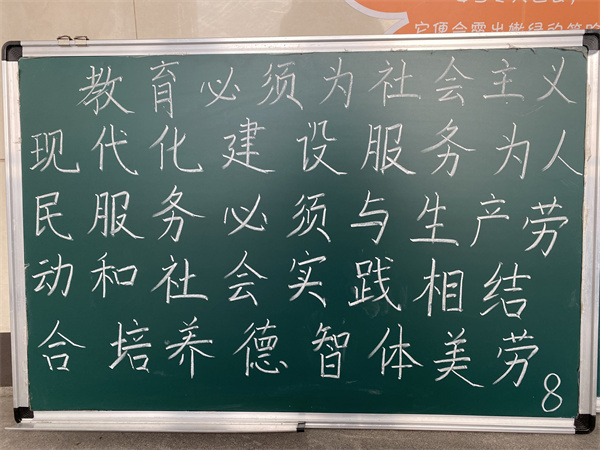 它便会露出嫩绿的笋
教育必须为社会主义
现代化建设服务为人
民服务必须与生产劳
动和社会实践相结
合培养德智体美劳
8